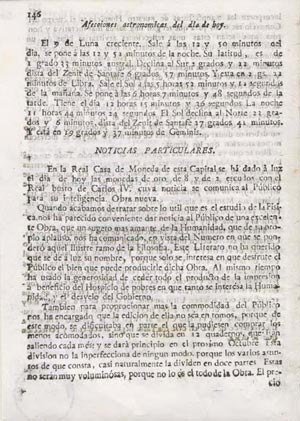 146
Afecciones astronomicas del dia de hoy.
El 9 de Luna creciente. Sale á las 12 y 50 minutos del
dia, se pone á las 12 y 52 minutos de la noche. Su latitud, es de
1 grado 33 minutos austral. Declina al Sur 2 grados y 22 minutos
dista del Zenit de Santafé 6 grados, 57 minutos. Y esta en 2 gs. 22
minutos de Libra. Sale el Sol á las 5 horas 52 minutos y 12 segundos
de la mañana. Se pone á las 6 horas 7 minutos y 48 segundos de la
tarde. Tiene el dia 12 horas 15 minutos y 36 segundos La noche
11 horas 44 minutos 24 segundos. El Sol declina al Norte 22 gra-
dos y 6 minutos, dista del Zenit de Santafé 37 grados 41 minutos.
Y está en 19 grados y 37 minutos de Geminis.
NOTICIAS PARTICULARES.
En la Real Casa de Moneda de esta Capital se há dado á luz
el dia de hoy las monedas de oro, de 8 y de 2, escudos con el
Real busto de Carlos IV. cuya noticia se comunica al Público
para su Inteligencia. Obra nueva.
Quando acabamos de tratar sobre lo util que es el estudio de la Fisi-
ca, nos há parecido conveniente dar noticia al Público de una excelen-
te Obra, que un sugeto mas amante de la Humanidad, que de su pro-
pio aplauso, nos há comunicado, en vista del Número en que se pon-
deró aquel Ilustre ramo de la Filosofia. Este Literato no há querido
que se dé á luz su nombre, porque solo se interesa en que desfrute el
Público el bien que puede producirle dicha Obra. Al mismo tiempo
ha usado la generosidad de ceder todo el producto de la imprenta
á beneficio del Hospicio de pobres en que tanto se interesa la Huma-
nidad, y el desvelo del Gobierno.
Tambien para proporcionar mas la commodidad del Público
nos há encargado que la edicion de ella no sea en tomos, porque de
este modo, se dificultaba en parte el que la pudiesen comprar los
menos acomodados, sino que se divida en 12 quadernos, que irán
saliendo cada mes; y se dará principio en el proximo Octubre Esta
division no la inperfecciona de ningun modo, porque los varios asun-
tos de que consta, casi naturalmente la dividen en doce partes. Estas
no serán muy voluminosas, porque no lo es el todo de la Obra. El pre-
cio